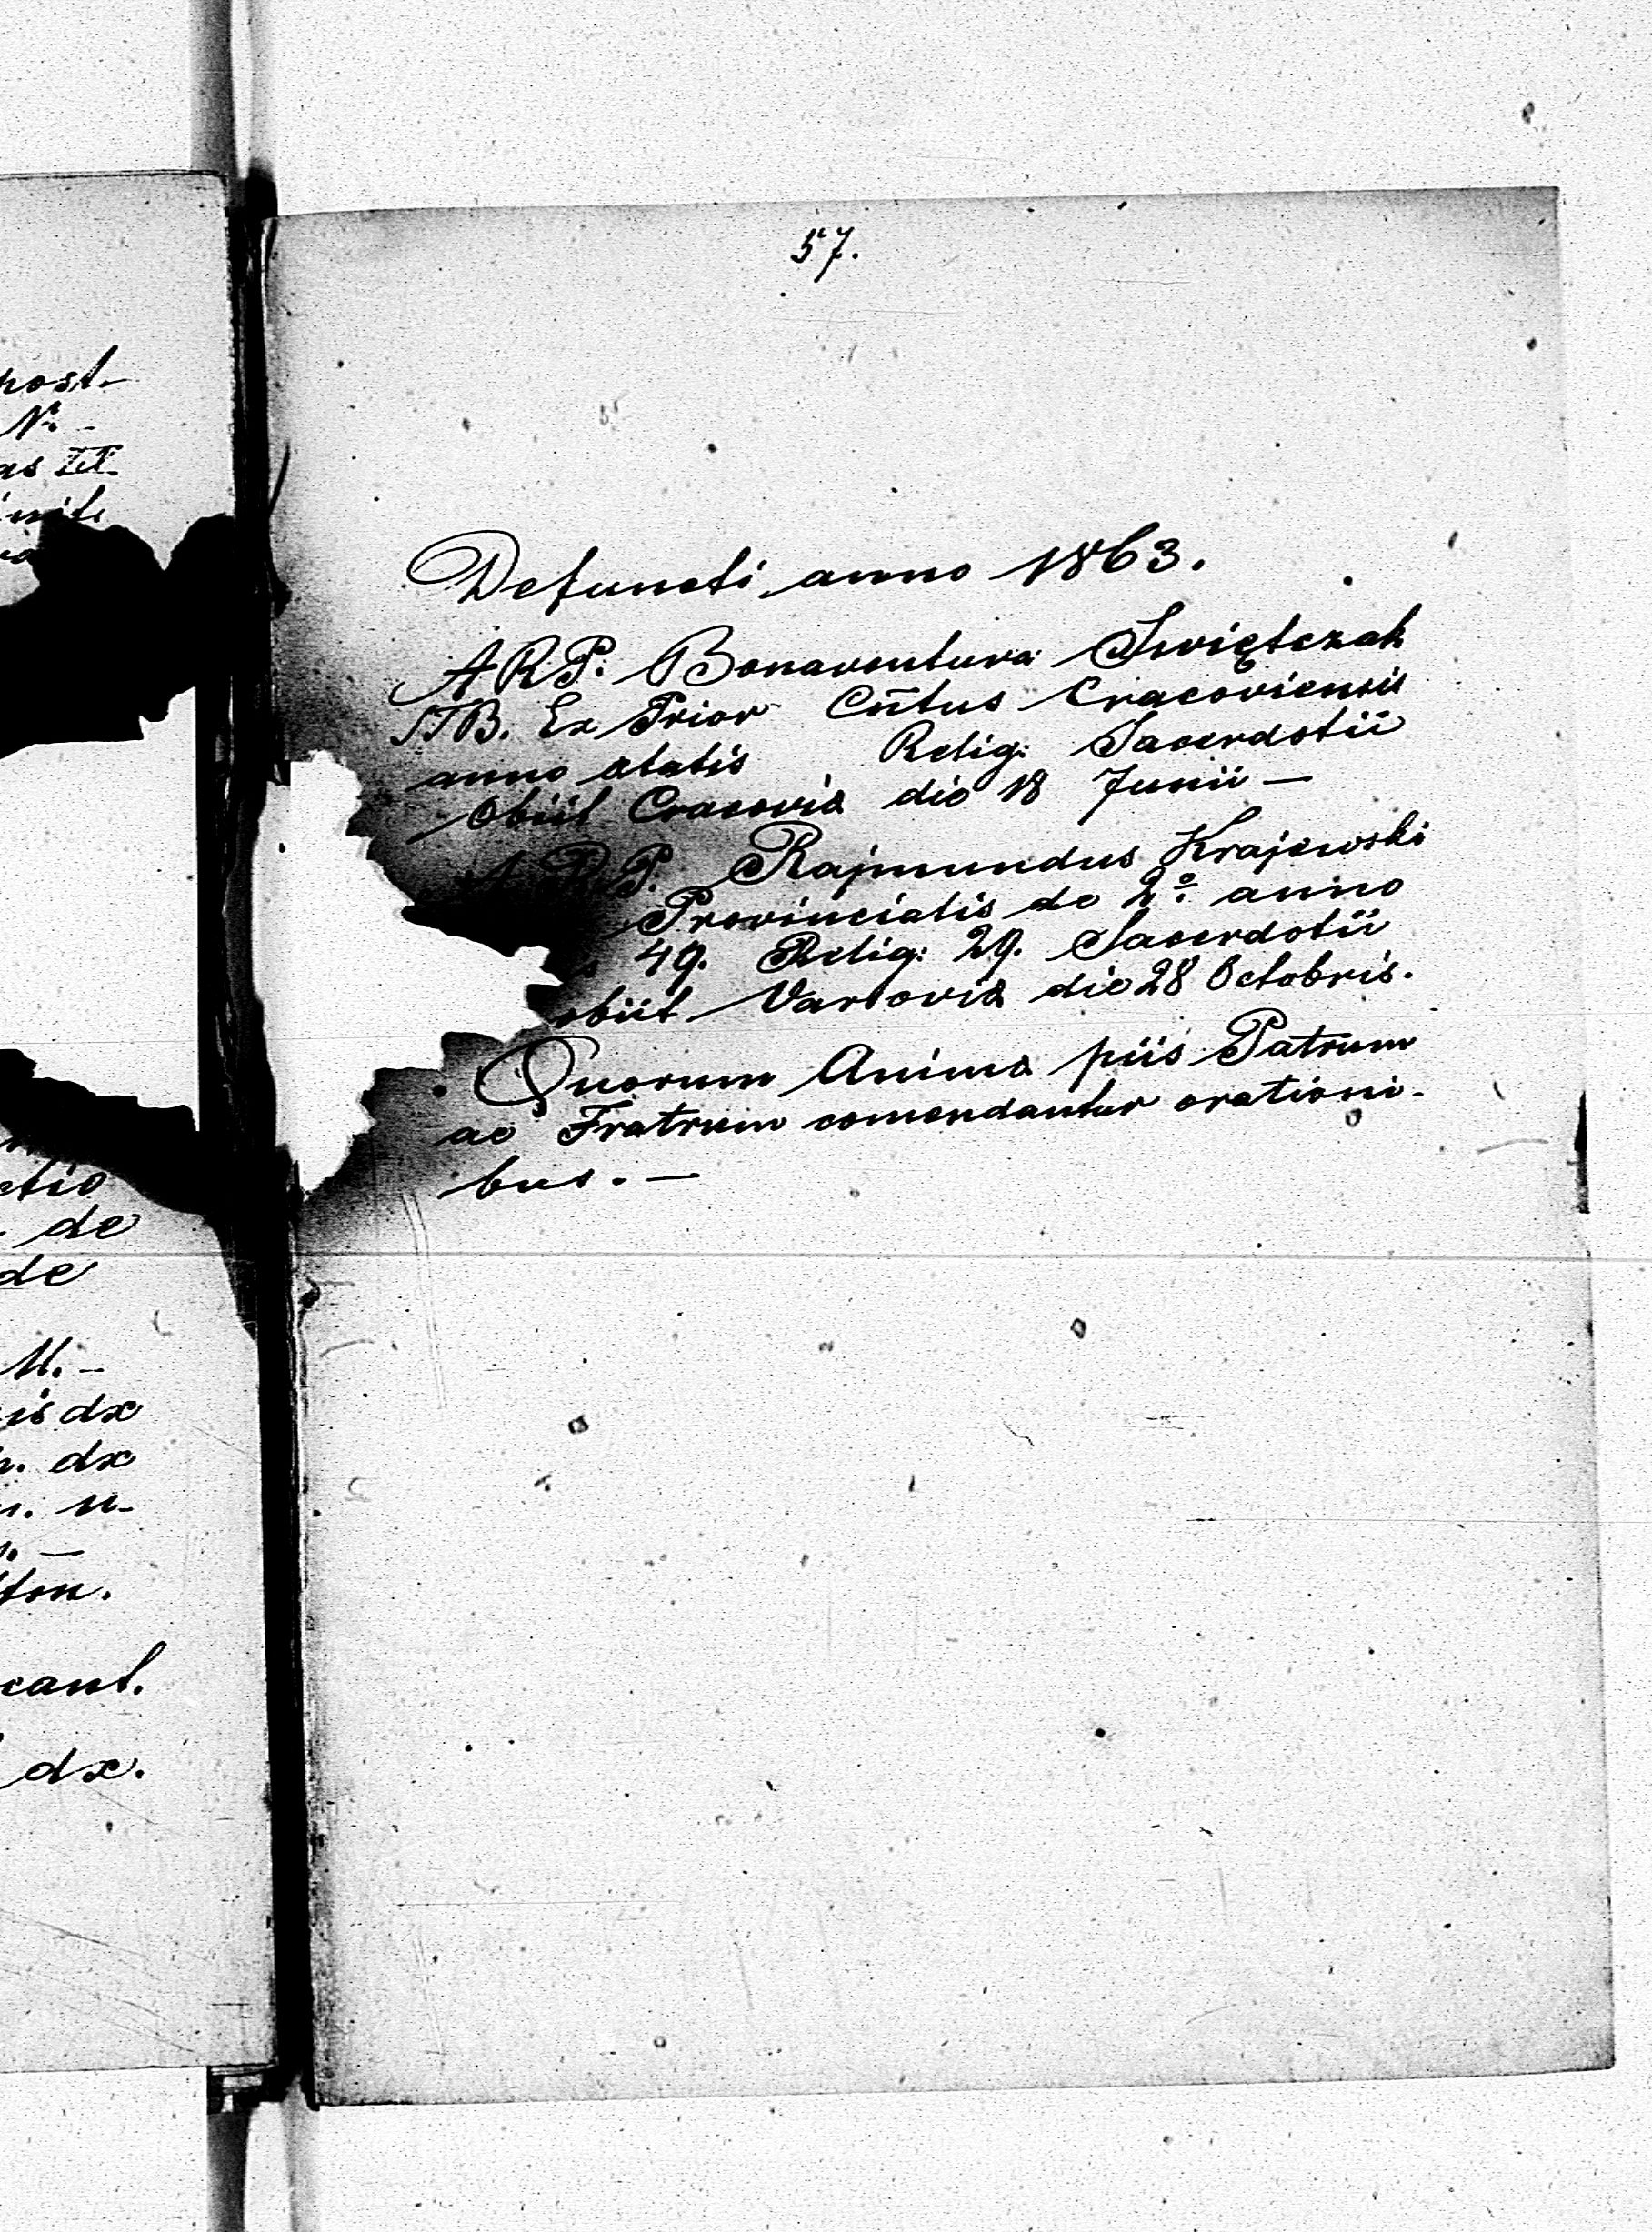 post.
N. -
as III.
ctio
de
de
M. -
is dx
n. dx
n. u-
cant.
dx.
57.
Defuncti anno 1863.
ARP. Bonaventura Swiętczak
STB. Ex Prior Cñtus Cracoviensis
anno ætatis Relig: Sacerdotii
Obiit Cracoviæ die 18 Junii —
ARP. Rajmundus Krajewski
Provincialis de 2º. anno
49. Relig: 29. Sacerdotii
obiit Varsoviæ die 28 Octobris.
Quorum Animæ piis Patrum
ac Fratrum comendantur orationi-
bus. —